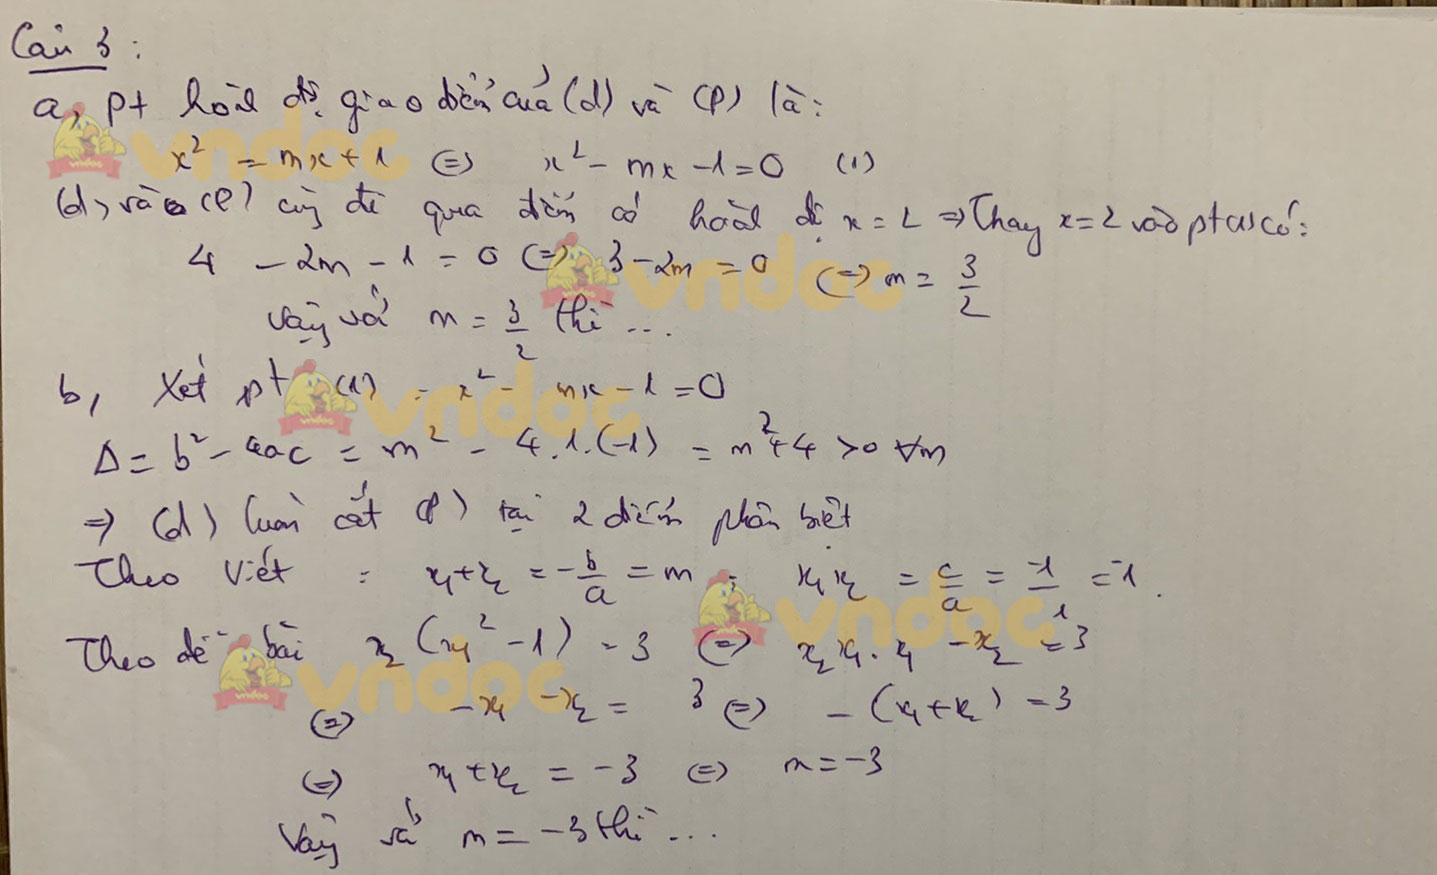 Câu 3:
a, pt hoành độ giao điểm của (d) và (P) là:
x² = mx + 1 (=) x² - mx - 1 = 0 (1)
(d) và (P) cùng đi qua điểm có hoành độ x = 2 => Thay x = 2 vào pt (1) có:
4 - 2m - 1 = 0 (=) 3 - 2m = 0 (=) m = 3/2
Vậy với m = 3/2 thì ...
b, Xét pt (1) : x² - mx - 1 = 0
Δ = b² - 4ac = m² - 4.1.(-1) = m² + 4 > 0 ∀m
=> (d) luôn cắt (P) tại 2 điểm phân biệt
Theo Viét : x₁ + x₂ = -b/a = m ; x₁x₂ = c/a = -1/1 = -1.
Theo đề bài x₂(x₁² - 1) = 3 (=) x₂x₁.x₁ - x₂ = 3
(=) -x₁ - x₂ = 3 (=) -(x₁ + x₂) = 3
(=) x₁ + x₂ = -3 (=) m = -3
Vậy với m = -3 thì ...
vndoc
vndoc
vndoc
vndoc
vndoc